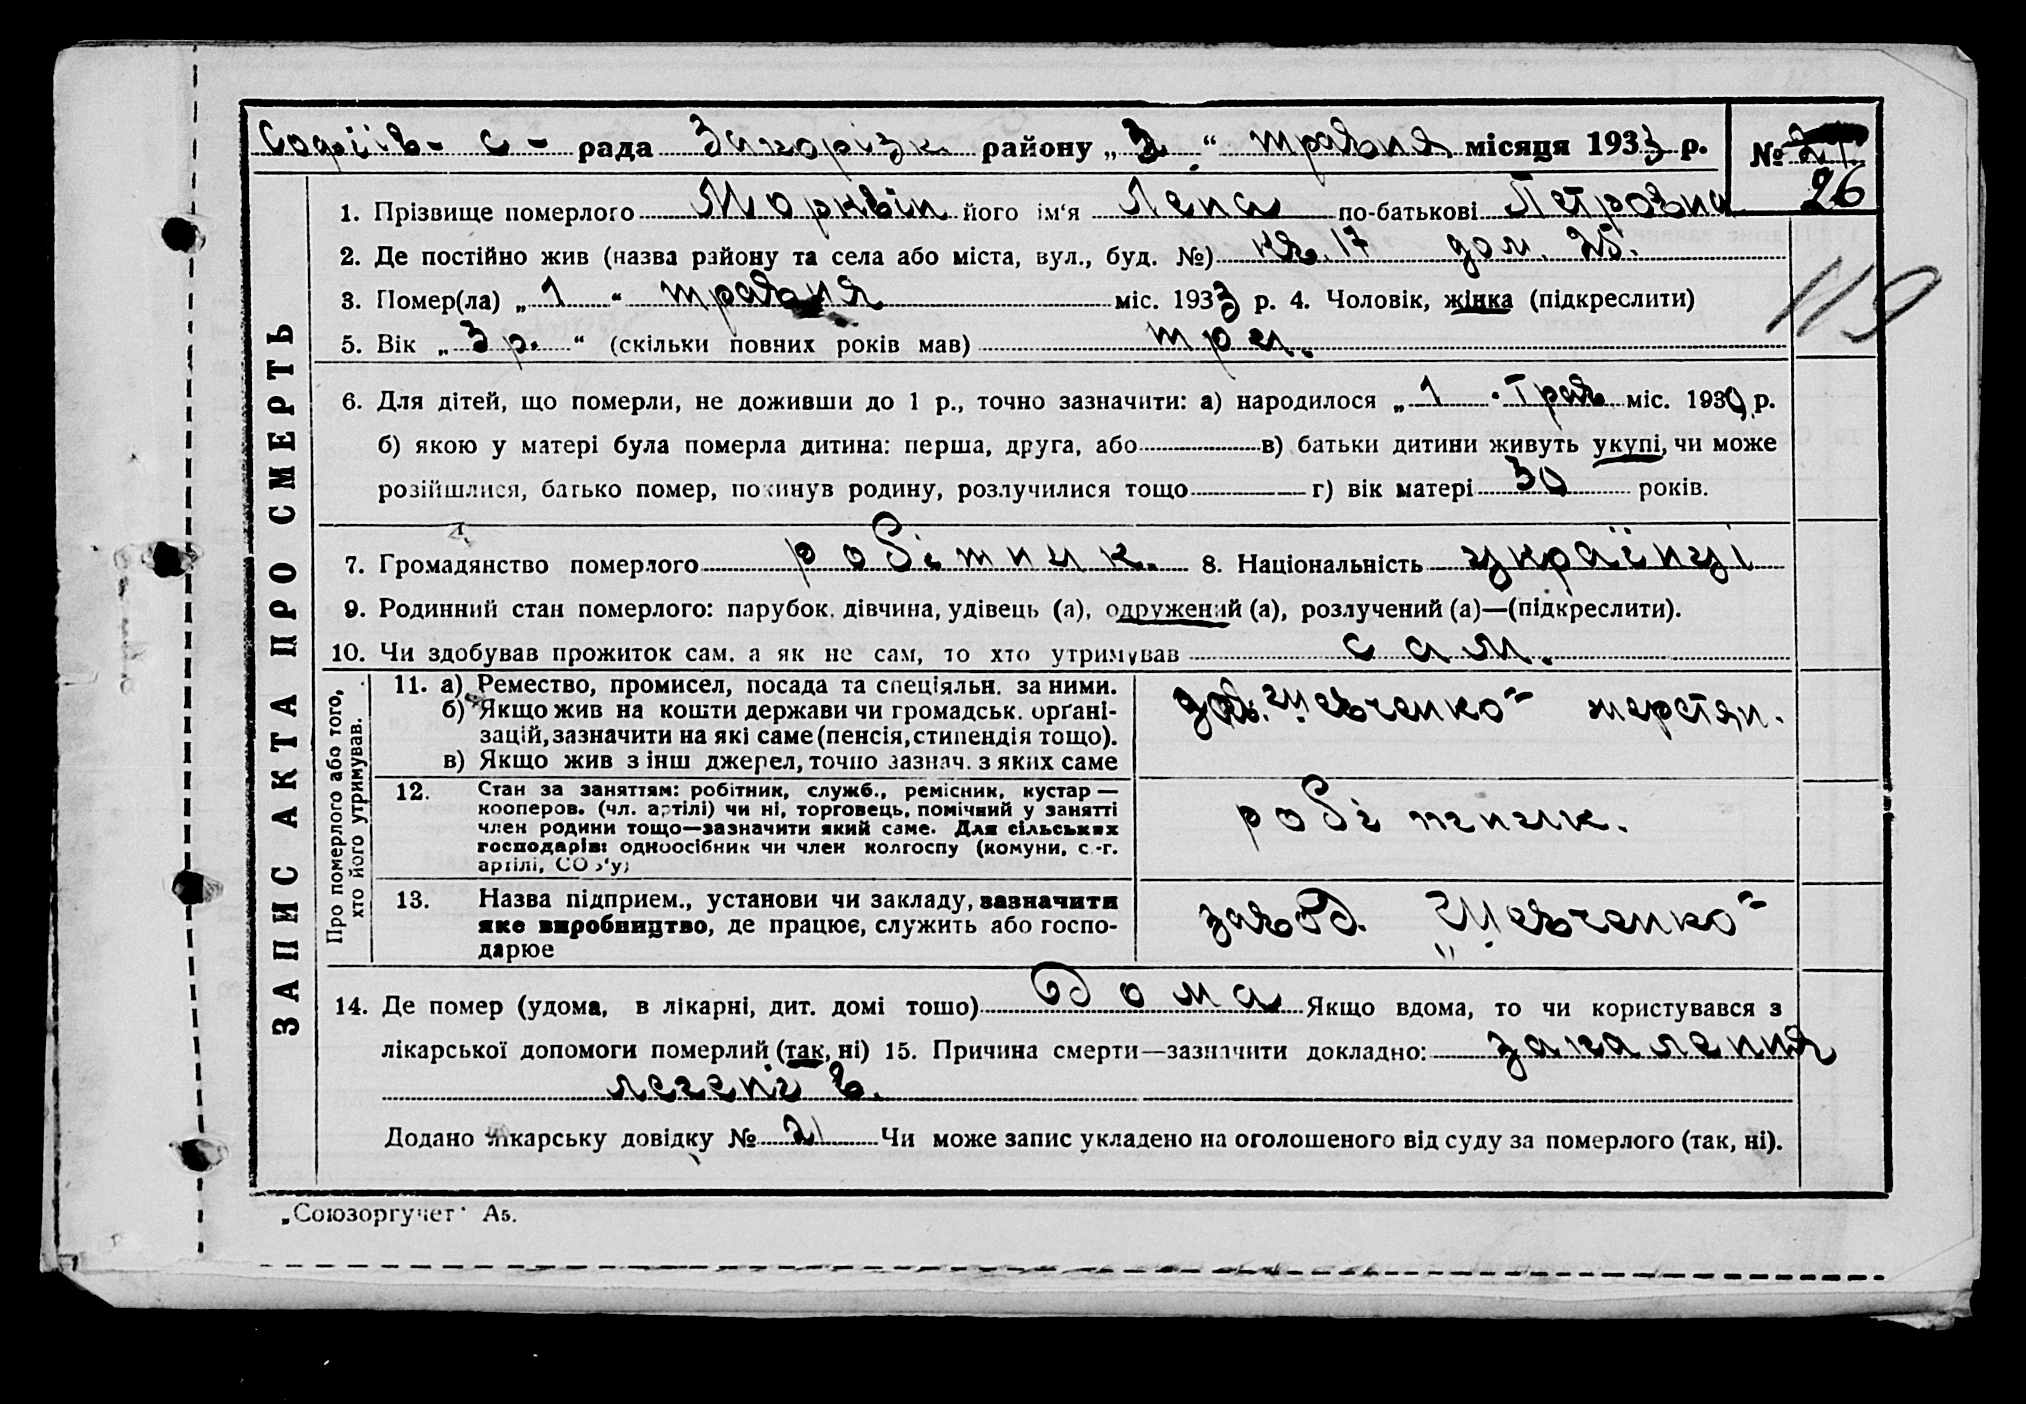 Софіїв- с - рада Запорізк. району „ 3 “ травня місяця 1933 р. №
26
1. Прізвище померлого Морквін його ім‘я Лєна по-батькові Петровна
2. Де постійно жив (назва району та села або міста, вул., буд. №) кв. 17 дом. 25.
3. Помер(ла) „ 1 “ травня міс. 1933 р. 4. Чоловік, жінка (підкреслити)
119
5. Вік „ 3 р. “ (скільки повних років мав) три.
6. Для дітей, що померли, не доживши до 1 р., точно зазначити: а) народилося „ 1 . Трав. міс. 1930 р.
б) якою у матері була померла дитина: перша, друга, або в) батьки дитини живуть укупі, чи може
розійшлися, батько помер, покинув родину, розлучилися тощо г) вік матері 30 років.
7. Громадянство померлого робітник. 8. Національність українці
9. Родинний стан померлого: парубок, дівчина, удівець (а), одружений (а), розлучений (а)—(підкреслити).
10. Чи здобував прожиток сам, а як не сам, то хто утримував сам.
ЗАПИС АКТА ПРО СМЕРТЬ
Про померлого або того,
хто його утримував.
11. а) Ремество, промисел, посада та спеціяльн. за ними.
б) Якщо жив на кошти держави чи громадськ. орґані-
зацій, зазначити на які саме (пенсія, стипендія тощо).
в) Якщо жив з інш джерел, точно зазнач. з яких саме
зав. „Шевченко“
12. Стан за заняттям: робітник, служб., ремісник, кустар —
кооперов. (чл. артілі) чи ні, торговець, помічний у занятті
член родини тощо—зазначити який саме. Для сільських
господарів: одноосібник чи член колгоспу (комуни, с.-г.
артілі, СОЗ‘у)
робітник.
13. Назва підприєм., установи чи закладу, зазначити
яке виробництво, де працює, служить або госпо-
дарює
завод. „Шевченко“
14. Де помер (удома, в лікарні, дит. домі тощо) Дома Якщо вдома, то чи користувався з
лікарської допомоги померлий (так, ні) 15. Причина смерти—зазначити докладно: запалення
легенів.
Додано лікарську довідку № 21 Чи може запис укладено на оголошеного від суду за померлого (так, ні).
„Союзоргучет“ А5.